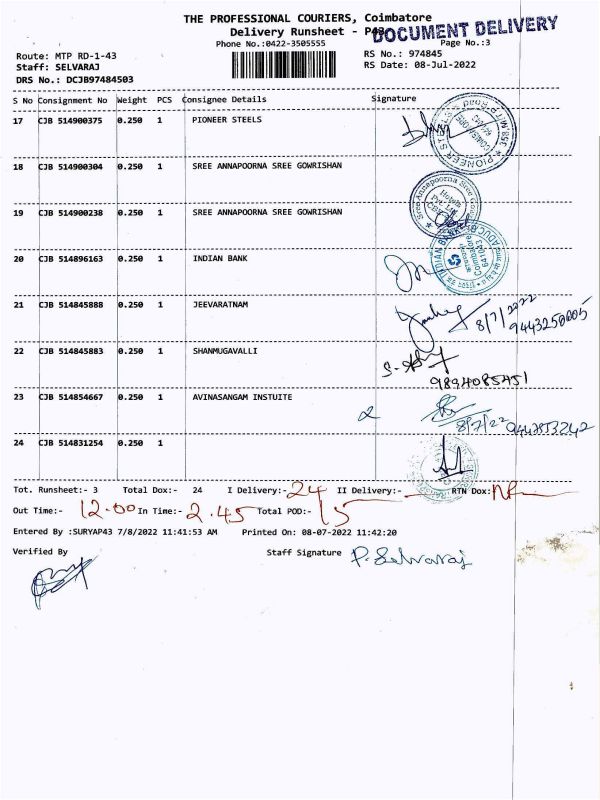 THE PROFESSIONAL COURIERS, Coimbatore
Delivery Runsheet - P43
DOCUMENT DELIVERY
Phone No.:0422-3505555
Page No.:3
Route: MTP RD-1-43
RS No.: 974845
Staff: SELVARAJ
RS Date: 08-Jul-2022
DRS No.: DCJB97484503
S No Consignment No Weight PCS Consignee Details Signature
17 CJB 514900375 0.250 1 PIONEER STEELS
18 CJB 514900304 0.250 1 SREE ANNAPOORNA SREE GOWRISHAN
19 CJB 514900238 0.250 1 SREE ANNAPOORNA SREE GOWRISHAN
20 CJB 514896163 0.250 1 INDIAN BANK
21 CJB 514845888 0.250 1 JEEVARATNAM
8/7/2022
9443250005
22 CJB 514845883 0.250 1 SHANMUGAVALLI
9894085451
23 CJB 514854667 0.250 1 AVINASANGAM INSTUITE
8/7/22 9442353242
24 CJB 514831254 0.250 1
Tot. Runsheet:- 3 Total Dox:- 24 I Delivery:- 24 II Delivery:- RTN Dox:-
Out Time:- 12.00 In Time:- 2.45 Total POD:- 15
Entered By :SURYAP43 7/8/2022 11:41:53 AM Printed On: 08-07-2022 11:42:20
Verified By Staff Signature P. Selvaraj